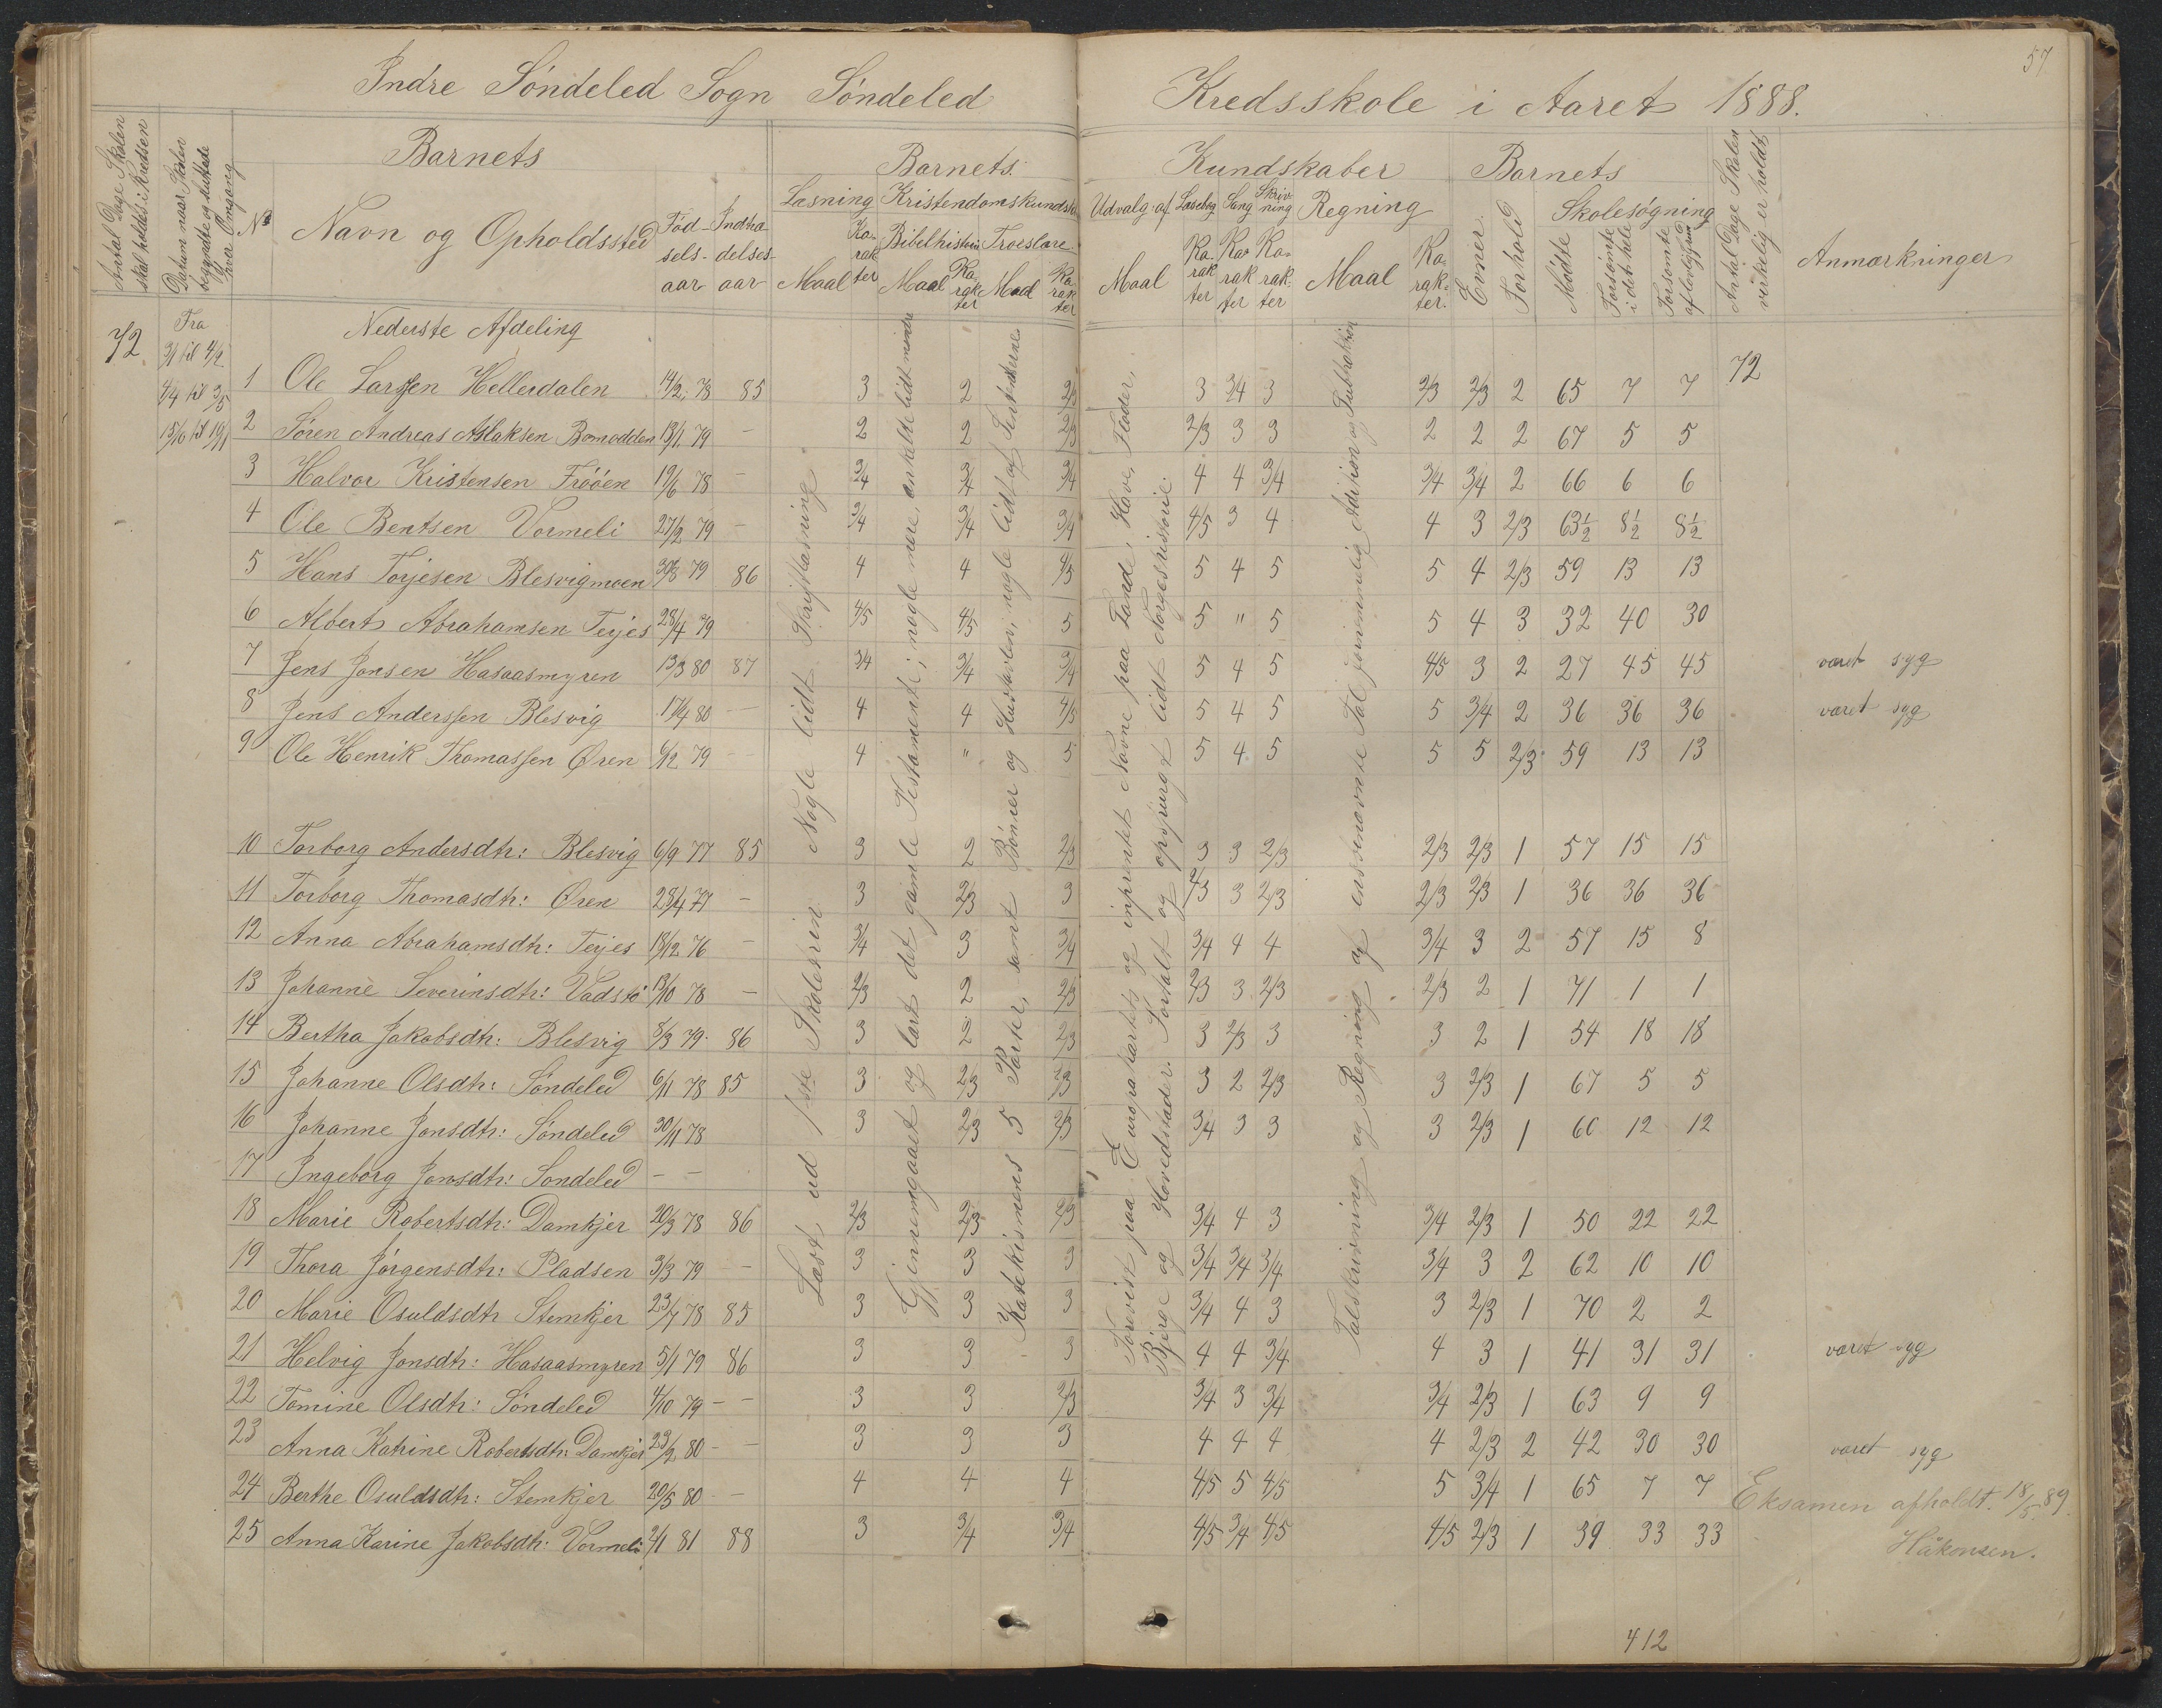 57
Indre Söndeled Sogn Söndeled Kredsskole i Aaret 1888.
Antal Dage Skolen skal holdes i Kredsen
Datum naar Skolen begyndte og sluttede hver Omgang
No
Barnets
Navn og Opholdssted
Födselsaar
Indtrædelsesaar
Barnets Kundskaber
Læsning
Maal
Karakter
Kristendomskundsk.
Bibelhistorie
Maal
Karakter
Troeslære
Maal
Karakter
Udvalg af Læsebog
Maal
Karakter
Sang
Karakter
Skrivning
Karakter
Regning
Maal
Karakter.
Barnets
Evner
Forhold
Skolesögning
Mödte
Forsömte i det hele
Forsömte af lovlig grund
Antal Dage Skolen virkelig er holdt
Anmærkninger
72
Fra
3/1 til 4/2
4/4 til 3/5
15/10 til 19/11
Nederste Afdeling
72
Læst ud 1ste Skoletrin. Nogle lidt Skriftlæsning
Gjennemgaaet og lært det gamle Testamente; nogle mere, enkelte lidt mindre
Katekismens 5 Parter, samt Bönner og Hustavlen; nogle lidt af
Forevist paa Europakartet og indprentet Navne paa Lande, Have, Floder,
Bjerge og Hovedstæder. Fortalt og opspurgt lidt Norgeshistorie.
Talskrivning og Regning af ensbenævnte Tal, fornemmelig Adition og Subtraktion
1 Ole Larssen Hellerdalen 14/2 78 85 3 2 2/3 3 3/4 3 2/3 2/3 2 65 7 7
2 Sören Andreas Aslaksen Bomodden 13/1 79 – 2 2 2/3 2/3 3 3 2 2 2 67 5 5
3 Halvor Kristensen Fröen 19/6 78 – 3/4 3/4 3/4 4 4 3/4 3/4 3/4 2 66 6 6
4 Ole Bentsen Vormeli 27/2 79 – 3/4 3/4 3/4 4/5 3 4 4 3 2/3 63½ 8½ 8½
5 Hans Torjesen Blesvigmoen 30/8 79 86 4 4 4/5 5 4 5 5 4 2/3 59 13 13
6 Albert Abrahamsen Terjes 28/4 79 4/5 4/5 5 5 " 5 5 4 3 32 40 30
7 Jens Jonsen Hasaasmyren 13/3 80 87 3/4 3/4 3/4 5 4 5 4/5 3 2 27 45 45 været syg
8 Jens Anderssen Blesvig 17/4 80 – 4 4 4/5 5 4 5 5 3/4 2 36 36 36 været syg
9 Ole Henrik Thomassen Øren 6/12 79 – 4 " 5 5 4 5 5 5 2/3 59 13 13
10 Torborg Andersdtr: Blesvig 6/9 77 85 3 2 2/3 3 3 2/3 2/3 2/3 1 57 15 15
11 Torborg Thomasdtr: Øren 28/4 77 – 3 2/3 3 2/3 3 2/3 2/3 2/3 1 36 36 36
12 Anna Abrahamsdtr: Terjes 18/12 76 – 3/4 3 3/4 3/4 4 4 3/4 3 2 57 15 8
13 Johanne Severinsdtr: Vadstö 13/10 78 – 2/3 2 2/3 2/3 3 2/3 2/3 2 1 71 1 1
14 Bertha Jakobsdtr: Blesvig 8/3 79 86 3 2 2/3 3 2/3 3 3 2 1 54 18 18
15 Johanne Olsdtr: Söndeled 6/11 78 85 3 2/3 2/3 3 2 2/3 3 2/3 1 67 5 5
16 Johanne Jonsdtr: Söndeled 30/11 78 3 2/3 2/3 3/4 3 3 3 2/3 1 60 12 12
17 Ingeborg Jonsdtr: Söndeled – –
18 Marie Robertsdtr: Damkjer 20/3 78 86 2/3 2/3 2/3 3/4 4 3 3/4 2/3 1 50 22 22
19 Thora Jörgensdtr: Pladsen 3/3 79 – 3 3 3 3/4 3/4 3/4 3/4 3 2 62 10 10
20 Marie Osuldsdtr Stemkjer 23/7 78 85 3 3 3 3/4 4 3 3 2/3 1 70 2 2
21 Helvig Jonsdtr: Hasaasmyren 5/1 79 86 3 3 3 4 4 3/4 4 3 1 41 31 31 været syg
22 Tomine Olsdtr: Söndeled 4/10 79 – – 3 3 2/3 3/4 3 3/4 3/4 2/3 1 63 9 9
23 Anna Katrine Robertsdtr: Damkjer 23/2 80 – – 3 3 3 4 4 4 4 2/3 2 42 30 30 været syg
24 Berthe Osuldsdtr: Stemkjer 20/5 80 – 4 4 4 4/5 5 4/5 5 3/4 1 65 7 7
25 Anna Karine Jakobsdtr: Vormeli 2/1 81 88 3 3/4 3/4 4/5 3/4 4/5 4/5 2/3 1 39 33 33
Eksamen afholdt. 18/5 89.
Håkonsen.
412